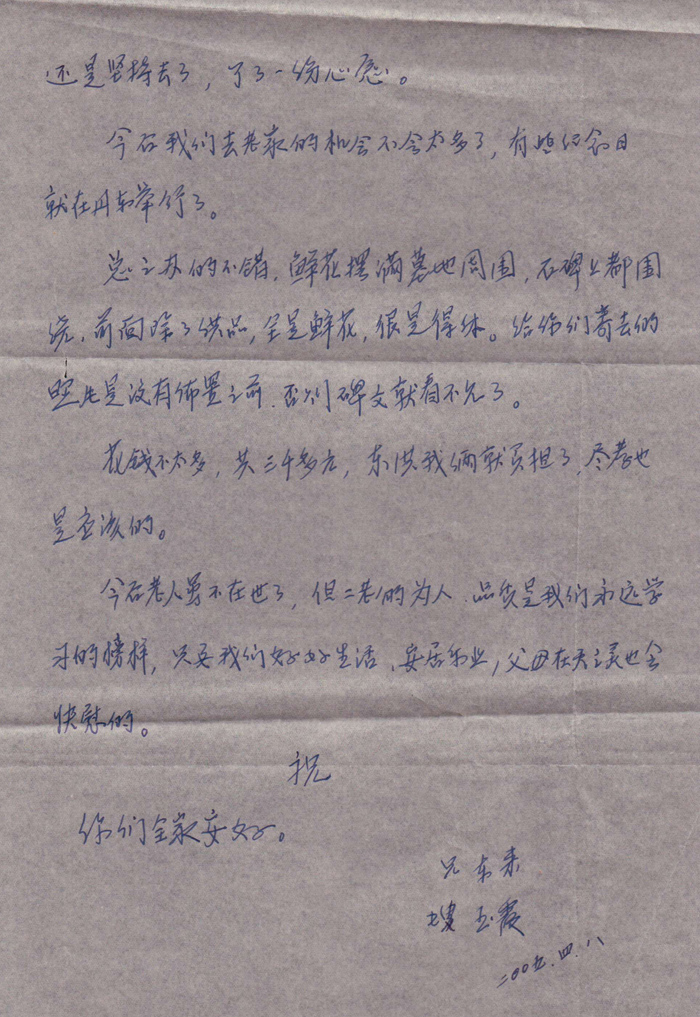 还是坚持去了，了了一份心愿。
今后我们去老家的机会不会太多了，有些纪念日
就在丹东举行了。
总之办的不错，鲜花摆满墓地周围，石碑上都围
绕，前面除了供品，全是鲜花，很是得体。给你们寄去的
照片是没有佈置之前，否则碑文就看不见了。
花钱不太多，共三千多元，东洪我俩就负担了，尽孝也
是应该的。
今后老人虽不在世了，但二老的为人、品质是我们永远学
习的榜样，只要我们好好生活、安居乐业，父母在天之灵也会
快慰的。
祝
你们全家安好。
兄 东来
嫂 玉霞
二〇〇五.四.八